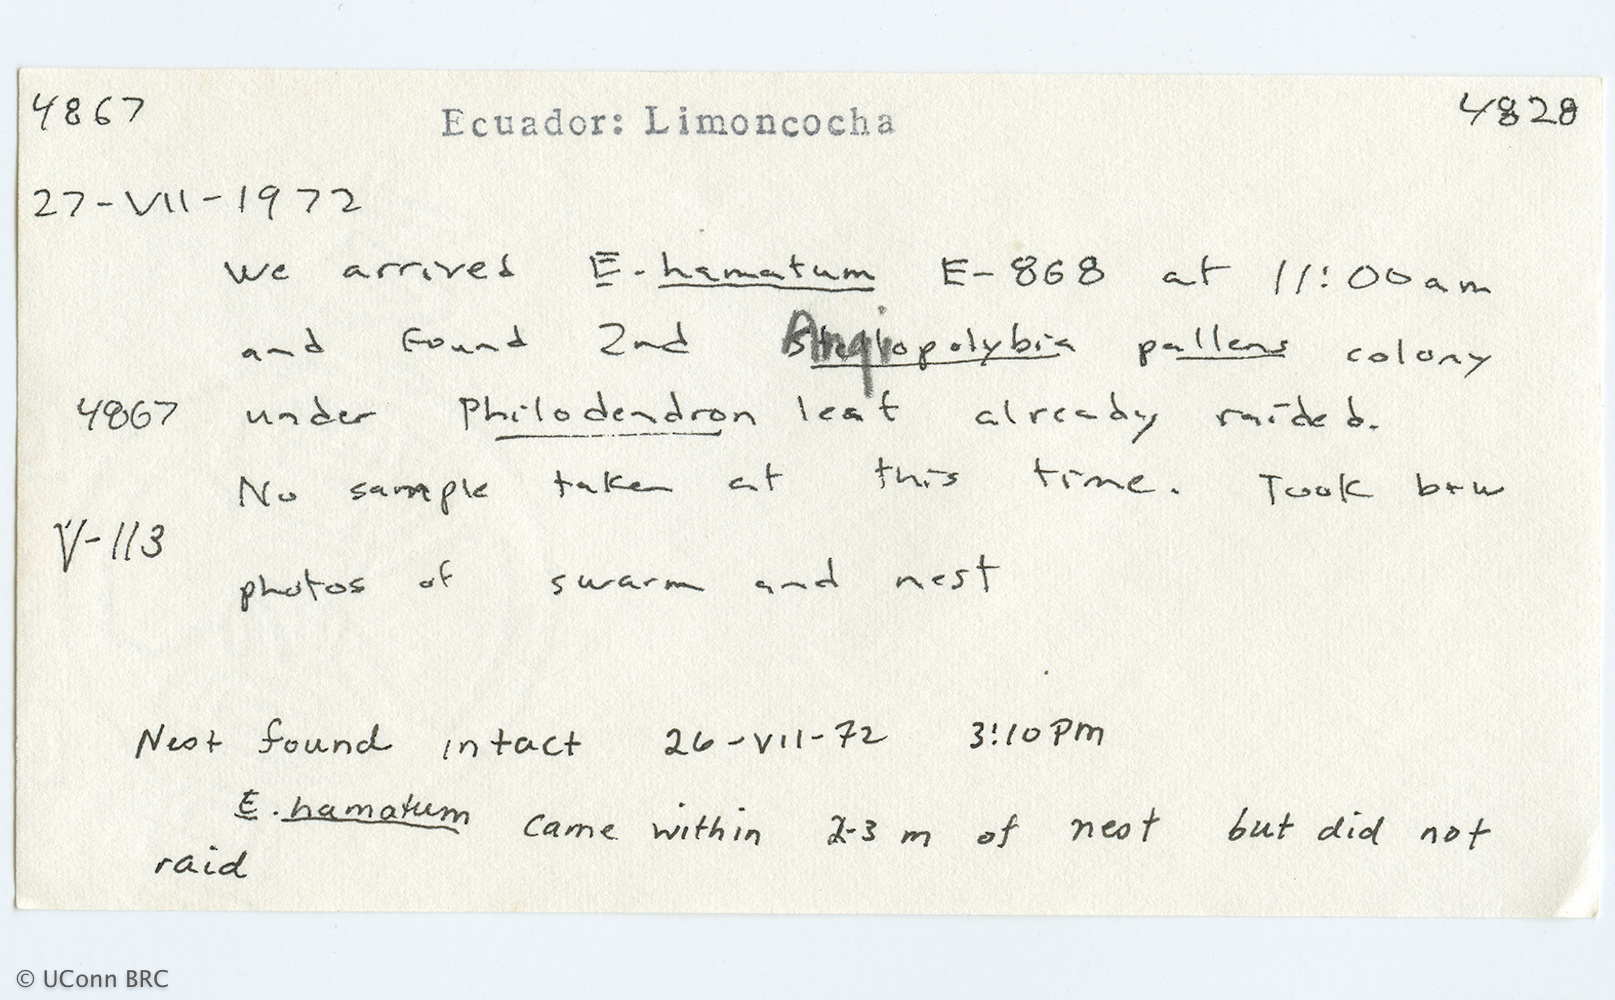 4867 Ecuador: Limoncocha 4828
27-VII-1972
We arrived E. hamatum E-868 at 11:00am
and found 2nd Angiopolybia pallens colony
4867 under Philodendron leaf already raided.
No sample taken at this time. Took b+w
V-113
photos of swarm and nest
Nest found intact 26-VII-72 3:10 PM
E. hamatum came within 2-3 m of nest but did not
raid
© UConn BRC